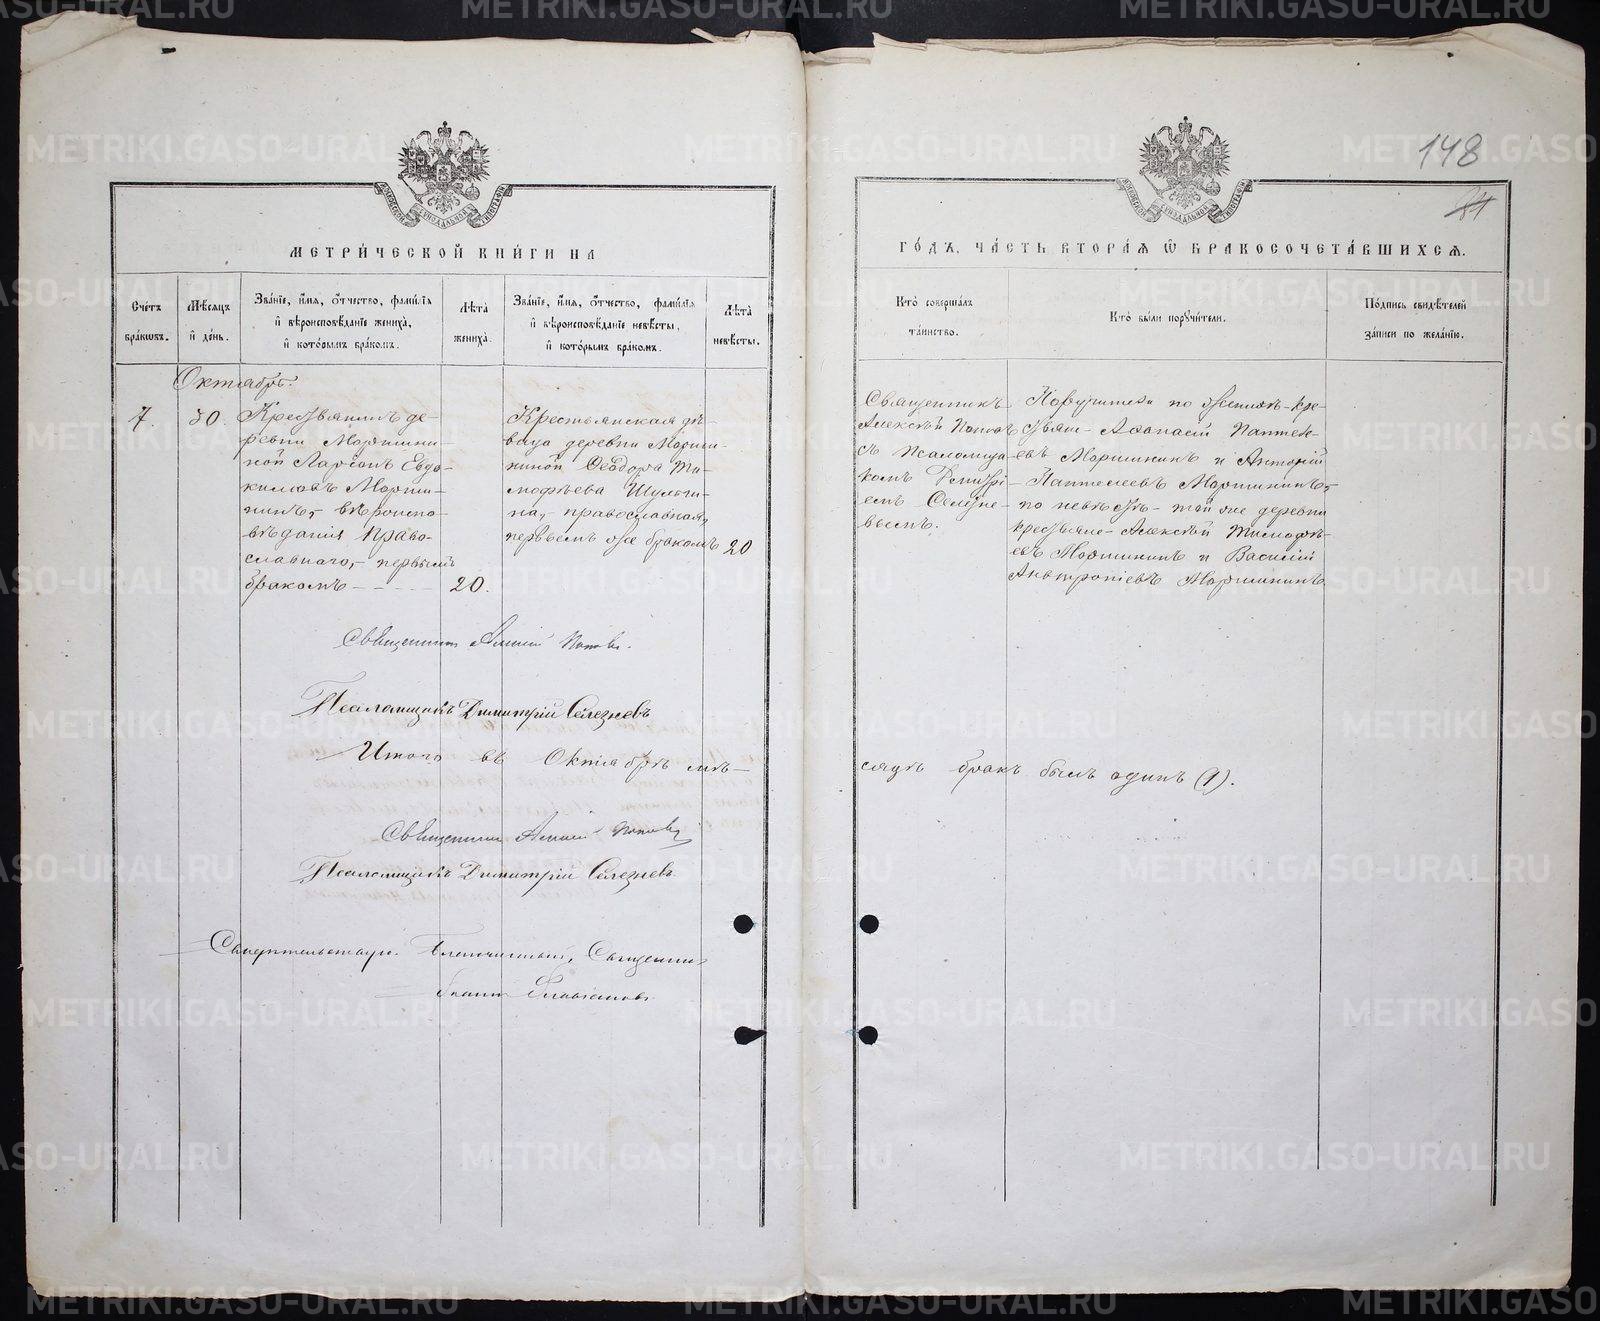 148
МОСКОВСКОЙ СѴНОДАЛЬНОЙ ТИПОГРАФІИ
МОСКОВСКОЙ СѴНОДАЛЬНОЙ ТИПОГРАФІИ
МЕТРИ́ЧЕСКОЙ КНИ́ГИ НА
ГО́ДЪ, ЧА́СТЬ ВТОРА́Я Ѿ БРАКОСОЧЕТА́ВШИХСЯ.
Сче́тъ бра́кѡвъ.
Мѣ́сяцъ и҆ де́нь.
Зва́нїе, и҆́мя, ѻ҆́тчество, фамі́лїя и҆ вѣроисповѣ́данїе жениха̀, и҆ кото́рымъ бра́комъ.
Лѣ́та жениха̀.
Зва́нїе, и҆́мя, ѻ҆́тчество, фамі́лїя и҆ вѣроисповѣ́данїе невѣ́сты, и҆ кото́рымъ бра́комъ.
Лѣ́та невѣ́сты.
Кто̀ соверша́лъ та́инство.
Кто̀ бы́ли порꙋчи́тели.
По́дпись свидѣ́телей за́писи по жела́нїю.
Октябрь.
7.
30.
Крестьянинъ де-
ревни Мартыни-
ной Ларіонъ Евдо-
кимовъ Марты-
нинъ, вѣроиспо-
вѣданія право-
славнаго, первымъ
бракомъ
20.
Крестьянская дѣ-
вица деревни Марты-
ниной Ѳеодора Ти-
мофѣева Шулыги-
на, православная,
первымъ же бракомъ
20
Священникъ
Алексѣй Поповъ
съ Псаломщи-
комъ Димитрі-
емъ Селезне-
вымъ.
Поручители по женихѣ - кре-
стьяне - Аѳанасій Пантеле-
евъ Мартынинъ и Антоній
Пантелеевъ Мартынинъ,
по невѣстѣ - той же деревни
крестьяне - Алексѣй Тимофѣ-
евъ Мартынинъ и Василій
Мартынинъ.
Священникъ Алексій Поповъ.
Псаломщикъ Димитрій Селезневъ
Итого въ Октябрѣ мѣ-
сяцѣ бракъ былъ одинъ (1).
Священникъ Алексій Поповъ
Псаломщикъ Димитрій Селезневъ
Благочинный, Священникъ
METRIKI.GASO-URAL.RU